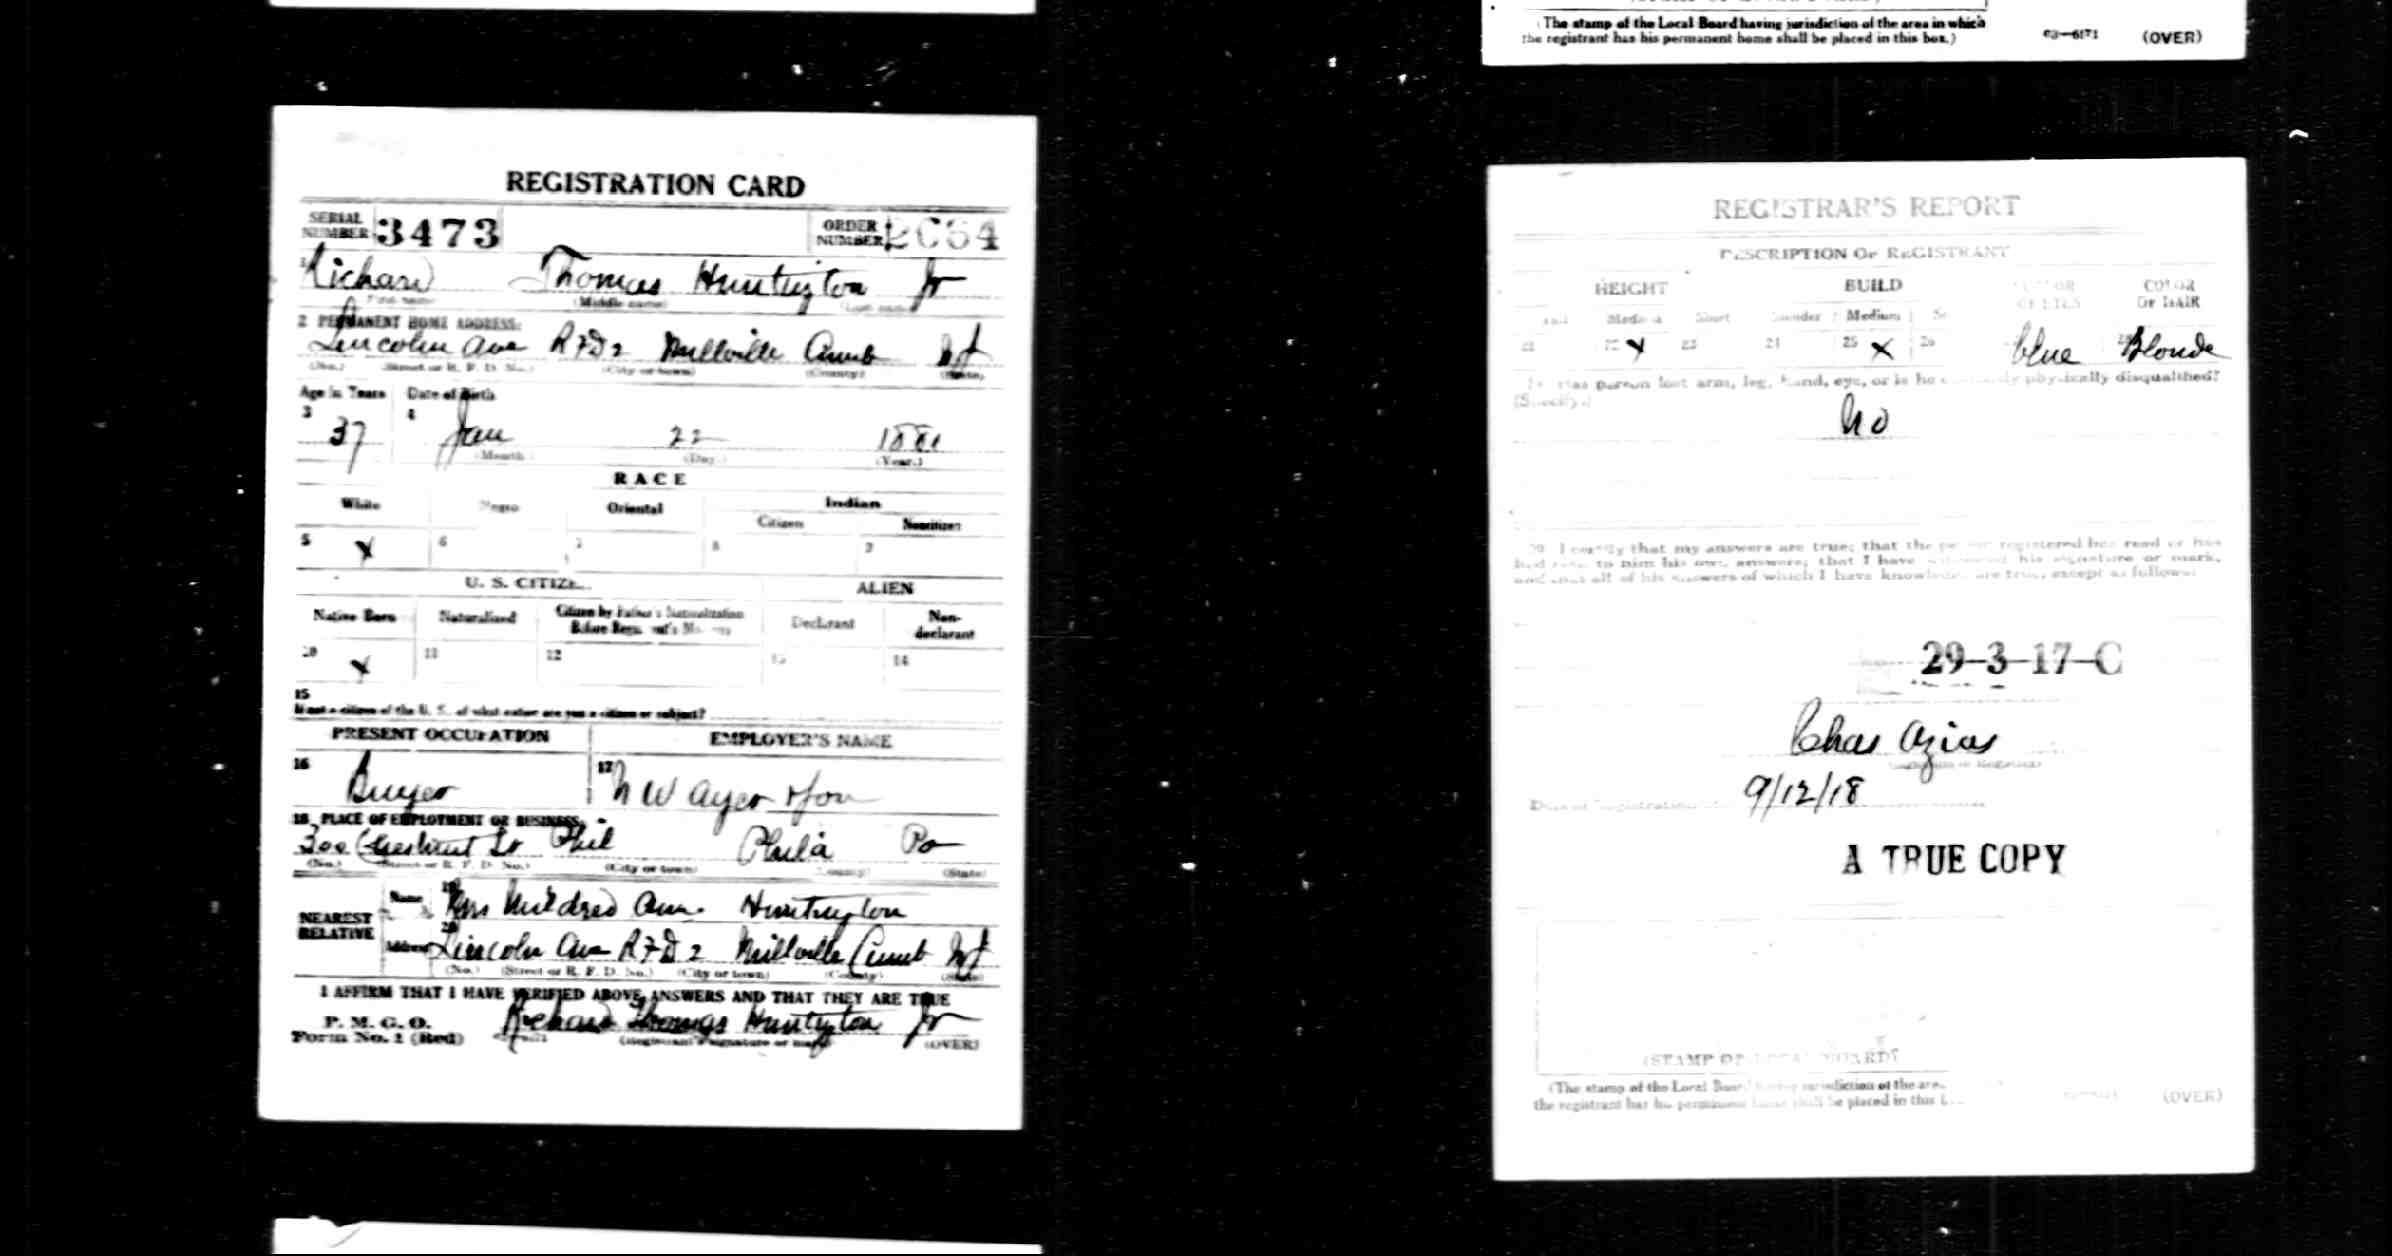 (The stamp of the Local Board having jurisdiction of the area in which
the registrant has his permanent home shall be placed in this box.)
(OVER)
REGISTRATION CARD
SERIAL NUMBER 3473
ORDER NUMBER
1 Richard Thomas Huntington Jr
(Middle name)
2 PERMANENT HOME ADDRESS:
Lincoln Ave RFD 2 Millville Cumb NJ
(No.) (Street or R. F. D. No.) (City or town) (County) (State)
Age in Years Date of Birth
3 37 4 Jan 22
(Month) (Day) (Year.)
RACE
White Negro Oriental Indian
Citizen Noncitizen
5 X 6 7 8 9
U. S. CITIZEN ALIEN
Native Born Naturalized Citizen by Father's Naturalization Declarant Non-declarant
10 X 11 12 13 14
15
If not a citizen of the U. S., of what nation are you a citizen or subject?
PRESENT OCCUPATION EMPLOYER'S NAME
16 Buyer 17 N W Ayer & Son
18 PLACE OF EMPLOYMENT OR BUSINESS:
300 Chestnut St Phil Phila Pa
(No.) (Street or R. F. D. No.) (City or town) (County) (State)
NEAREST RELATIVE
Name 19 Mrs Mildred Huntington
Address 20 Lincoln Ave RFD 2 Millville Cumb NJ
(No.) (Street or R. F. D. No.) (City or town) (County) (State)
I AFFIRM THAT I HAVE VERIFIED ABOVE ANSWERS AND THAT THEY ARE TRUE
P. M. G. O.
Form No. 1 (Red) Richard Thomas Huntington Jr
(Registrant's signature or mark) (OVER)
REGISTRAR'S REPORT
DESCRIPTION OF REGISTRANT
HEIGHT BUILD COLOR OF EYES COLOR OF HAIR
Tall Medium Short Slender Medium
21 22 X 23 24 25 X 26 blue Blonde
person lost arm, leg, hand, eye, or is he physically disqualified?
(Specify.)
No
I certify that my answers are true; that the person registered has read or has
had read to him his own answers; that I have witnessed his signature or mark,
and that all of his answers of which I have knowledge are true, except as follows:
29-3-17-C
Chas
Date of Registration 9/12/18
A TRUE COPY
(STAMP OF LOCAL BOARD)
(The stamp of the Local Board having jurisdiction of the area
the registrant has his permanent home shall be placed in this
(OVER)